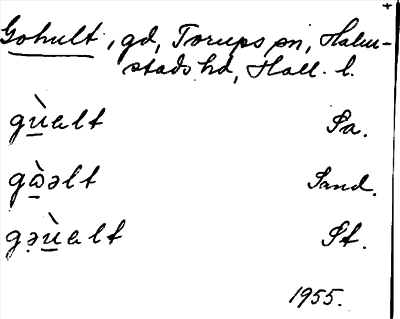 Gohult, gd, Torups sn, Halm-
stads hd, Hall. l.
gù̱alt Sa.
gɷ̱̀əlt Sand.
gə̣ù̱alt St.
1955.